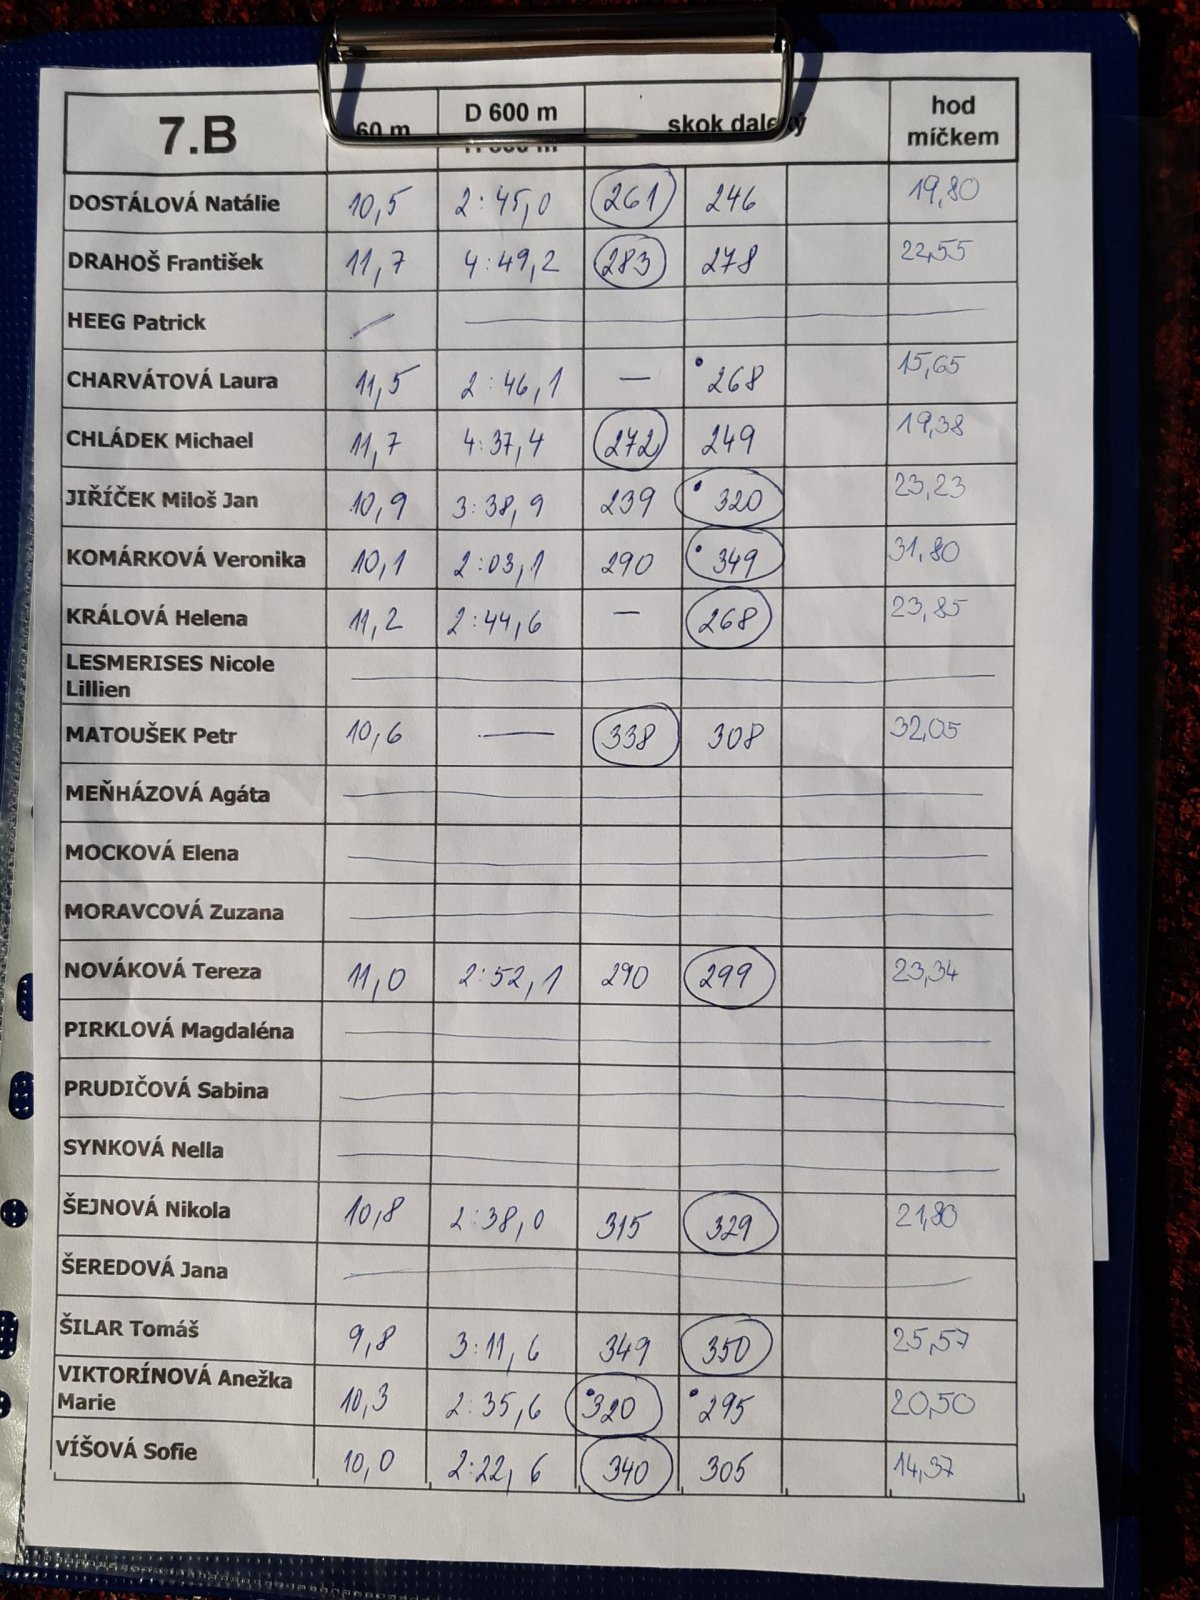 7.B 60 m D 600 m skok daleký hod míčkem
DOSTÁLOVÁ Natálie 10,5 2:45,0 261 246 19,80
DRAHOŠ František 11,7 4:49,2 283 278 22,55
HEEG Patrick
CHARVÁTOVÁ Laura 11,5 2:46,1 — 268 15,65
CHLÁDEK Michael 11,7 4:37,4 272 249 19,38
JIŘÍČEK Miloš Jan 10,9 3:38,9 239 320 23,23
KOMÁRKOVÁ Veronika 10,1 2:03,1 290 349 31,80
KRÁLOVÁ Helena 11,2 2:44,6 — 268 23,85
LESMERISES Nicole
Lillien
MATOUŠEK Petr 10,6 — 338 308 32,05
MEŇHÁZOVÁ Agáta
MOCKOVÁ Elena
MORAVCOVÁ Zuzana
NOVÁKOVÁ Tereza 11,0 2:52,1 290 299 23,34
PIRKLOVÁ Magdaléna
PRUDIČOVÁ Sabina
SYNKOVÁ Nella
ŠEJNOVÁ Nikola 10,8 2:38,0 315 329 21,80
ŠEREDOVÁ Jana
ŠILAR Tomáš 9,8 3:11,6 349 350 25,57
VIKTORÍNOVÁ Anežka
Marie 10,3 2:35,6 320 295 20,50
VÍŠOVÁ Sofie 10,0 2:22,6 340 305 14,37